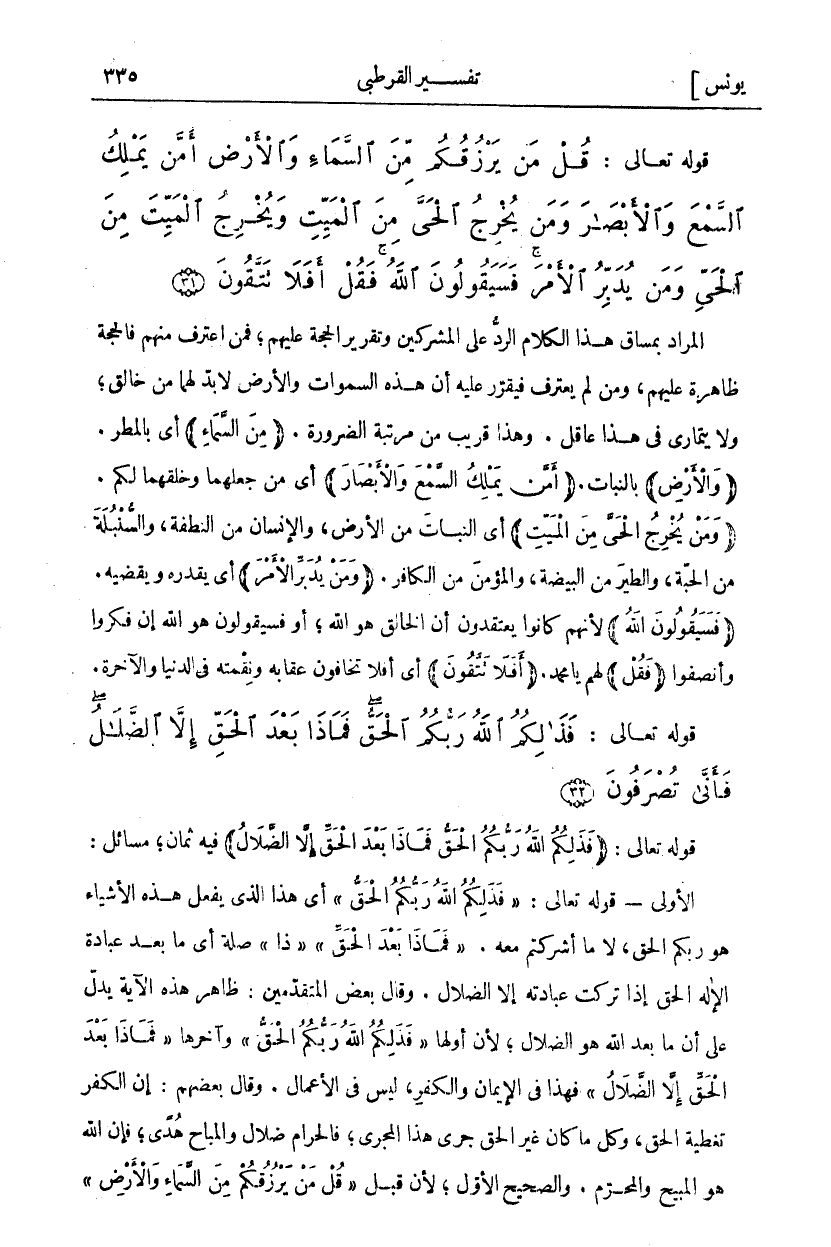 يونس] تفسير القرطبى ٣٣٥
قوله تعالى : قُلْ مَن يَرْزُقُكُم مِّنَ ٱلسَّمَآءِ وَٱلْأَرْضِ أَمَّن يَمْلِكُ
ٱلسَّمْعَ وَٱلْأَبْصَـٰرَ وَمَن يُخْرِجُ ٱلْحَىَّ مِنَ ٱلْمَيِّتِ وَيُخْرِجُ ٱلْمَيِّتَ مِنَ
ٱلْحَىِّ وَمَن يُدَبِّرُ ٱلْأَمْرَ ۚ فَسَيَقُولُونَ ٱللَّهُ ۚ فَقُلْ أَفَلَا تَتَّقُونَ ٣١
المراد بمساق هـذا الكلام الردُّ على المشركين وتقرير الحجة عليهم؛ فمن اعترف منهم فالحجة
ظاهرة عليهم، ومن لم يعترف فيقرّر عليه أن هـذه السموات والأرض لابدّ لهما من خالق؛
ولا يتمارى فى هـذا عاقل . وهذا قريب من مرتبة الضرورة . ﴿مِنَ السَّمَاءِ﴾ أى بالمطر .
﴿وَالْأَرْضِ﴾ بالنبات. ﴿أَمَّن يَمْلِكُ السَّمْعَ وَالْأَبْصَارَ﴾ أى من جعلهما وخلقهما لكم .
﴿وَمَنْ يُخْرِجُ الْحَىَّ مِنَ الْمَيِّتِ﴾ أى النبـاتَ من الأرض، والإنسان من النطفة، والسُّنْبُلَة
من الحبّة، والطيرَ من البيضة، والمؤمنَ من الكافر . ﴿وَمَنْ يُدَبِّرُ الْأَمْرَ﴾ أى يقدره ويقضيه.
﴿فَسَيَقُولُونَ اللّٰهُ﴾ لأنهم كانوا يعتقدون أن الخالق هو الله ؛ أو فسيقولون هو الله إن فكروا
وأنصفوا ﴿فَقُلْ﴾ لهم يا محمد. ﴿أَفَلَا تَتَّقُونَ﴾ أى أفلا تخافون عقابه ونِقْمته فى الدنيا والآخرة.
قوله تعـالى : فَذَٰلِكُمُ ٱللَّهُ رَبُّكُمُ ٱلْحَقُّ ۖ فَمَاذَا بَعْدَ ٱلْحَقِّ إِلَّا ٱلضَّلَـٰلُ ۖ
فَأَنَّىٰ تُصْرَفُونَ ٣٢
قوله تعالى : ﴿فَذَلِكُمُ اللّٰهُ رَبُّكُمُ الْحَقُّ فَمَاذَا بَعْدَ الْحَقِّ إِلَّا الضَّلَالُ﴾ فيه ثمان؛ مسائل :
الأولى — قوله تعالى : « فَذَلِكُمُ اللّٰهُ رَبُّكُمُ الْحَقُّ » أى هذا الذى يفعل هـذه الأشياء
هو ربكم الحق، لا ما أشركتم معه . « فَمَـاذَا بَعْدَ الْحَقِّ » « ذا » صلة أى ما بعـد عبادة
الإله الحق إذا تركت عبادته إلا الضلال . وقال بعض المتقدّمين : ظاهر هذه الآية يدلّ
على أن ما بعد الله هو الضلال ؛ لأن أولها « فَذَلِكُمُ اللّٰهُ رَبُّكُمُ الْحَقُّ » وآخرها « فَمَـاذَا بَعْدَ
الْحَقِّ إِلَّا الضَّلَالُ » فهذا فى الإيمان والكفر، ليس فى الأعمال . وقال بعضهم : إن الكفر
تغطية الحق، وكل ما كان غير الحق جرى هذا المجرى؛ فالحرام ضلال والمباح هُدًى؛ فإن الله
هو المبيح والمحـرّم . والصحيح الأوّل ؛ لأن قبـل « قُلْ مَنْ يَرْزُقُكُمْ مِنَ السَّمَاءِ وَالْأَرْضِ »